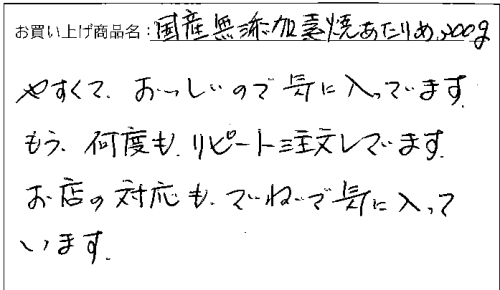 お買い上げ商品名:国産無添加素焼あたりめ500g
やすくて、おいしいので気に入っています。
もう、何度も、リピート注文しています。
お店の対応も、ていねいで気に入って
います。